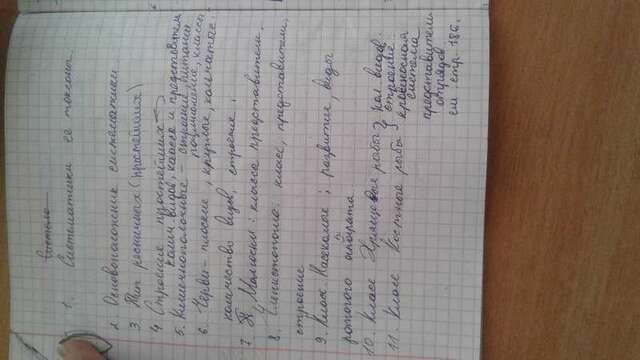 Система
1. Систематики ее таксоны.
2. Основоположник систематики
3 Тип ресничных (простейших)
4 Строение простейших
колич. видов, класса и представители
5. Кишечнополостные - строение, питание
размножение, классы
6. Черви - плоские, круглые, кольчатые:
количество видов, строение.
7. Т. Малюски: класса представители.
8. Членистоногие: класс, представители,
строение
9. Класс Насекомые; развитие, виды
ротового аппарата
10. Класс Хрящевые рыбы } кол. видов.
11. Класс Костные рыбы } строение
кровеносная
система
представители
отрядов
см. стр. 186.